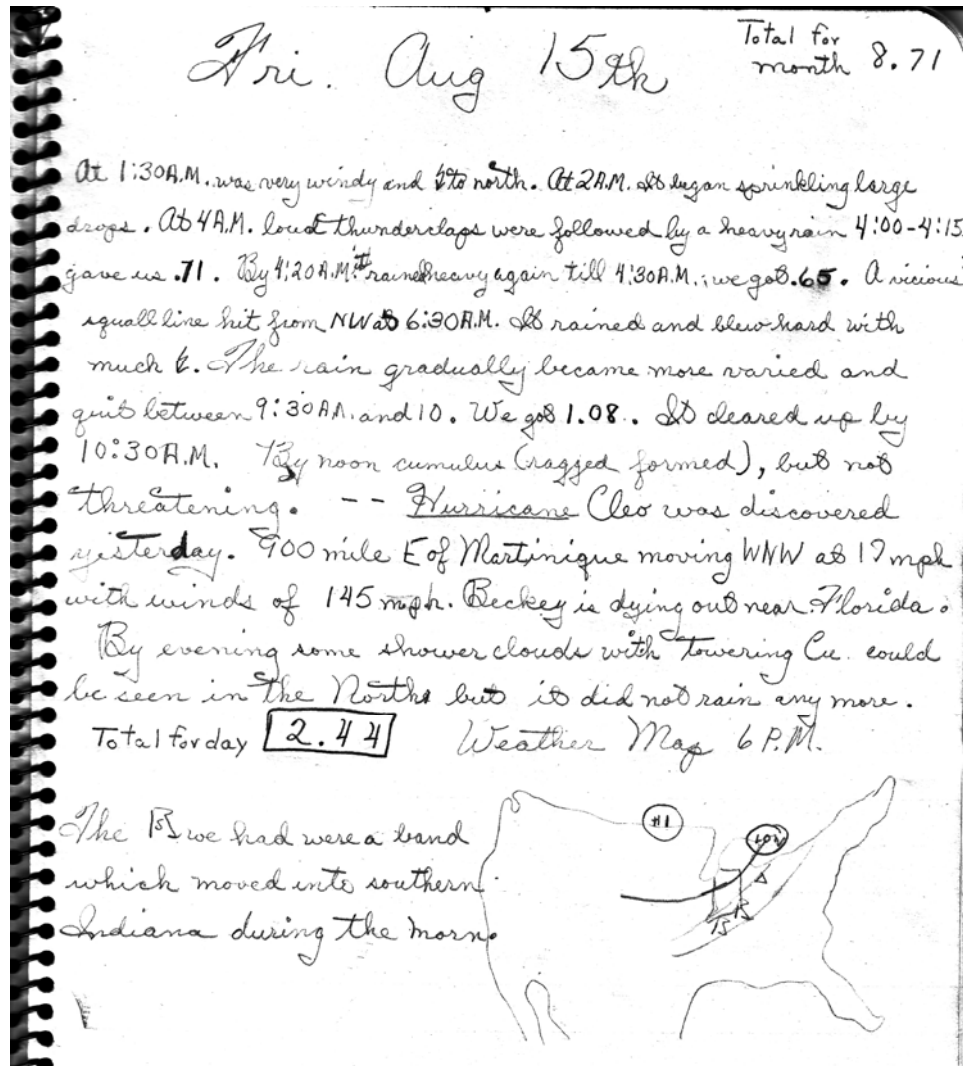 Total for
month 8.71
Fri. Aug 15th
At 1:30A.M. was very windy and to north. At 2A.M. It began sprinkling large
drops. At 4A.M. loud thunderclaps were followed by a heavy rain 4:00-4:15
gave us .71. By 4:20A.M. it rained heavy again till 4:30A.M.; we got .65. A vicious
squall line hit from NW at 6:30A.M. It rained and blew hard with
much. The rain gradually became more varied and
quit between 9:30A.M. and 10. We got 1.08. It cleared up by
10:30A.M. By noon cumulus (ragged formed), but not
threatening. -- Hurricane Cleo was discovered
yesterday. 900 mile E of Martinique moving WNW at 17 mph
with winds of 145 mph. Beckey is dying out near Florida.
By evening some shower clouds with towering Cu. could
be seen in the North but it did not rain any more.
Total for day 2.44 Weather Map 6 P.M.
The we had were a band
which moved into southern
Indiana during the morn.
HI
LOW